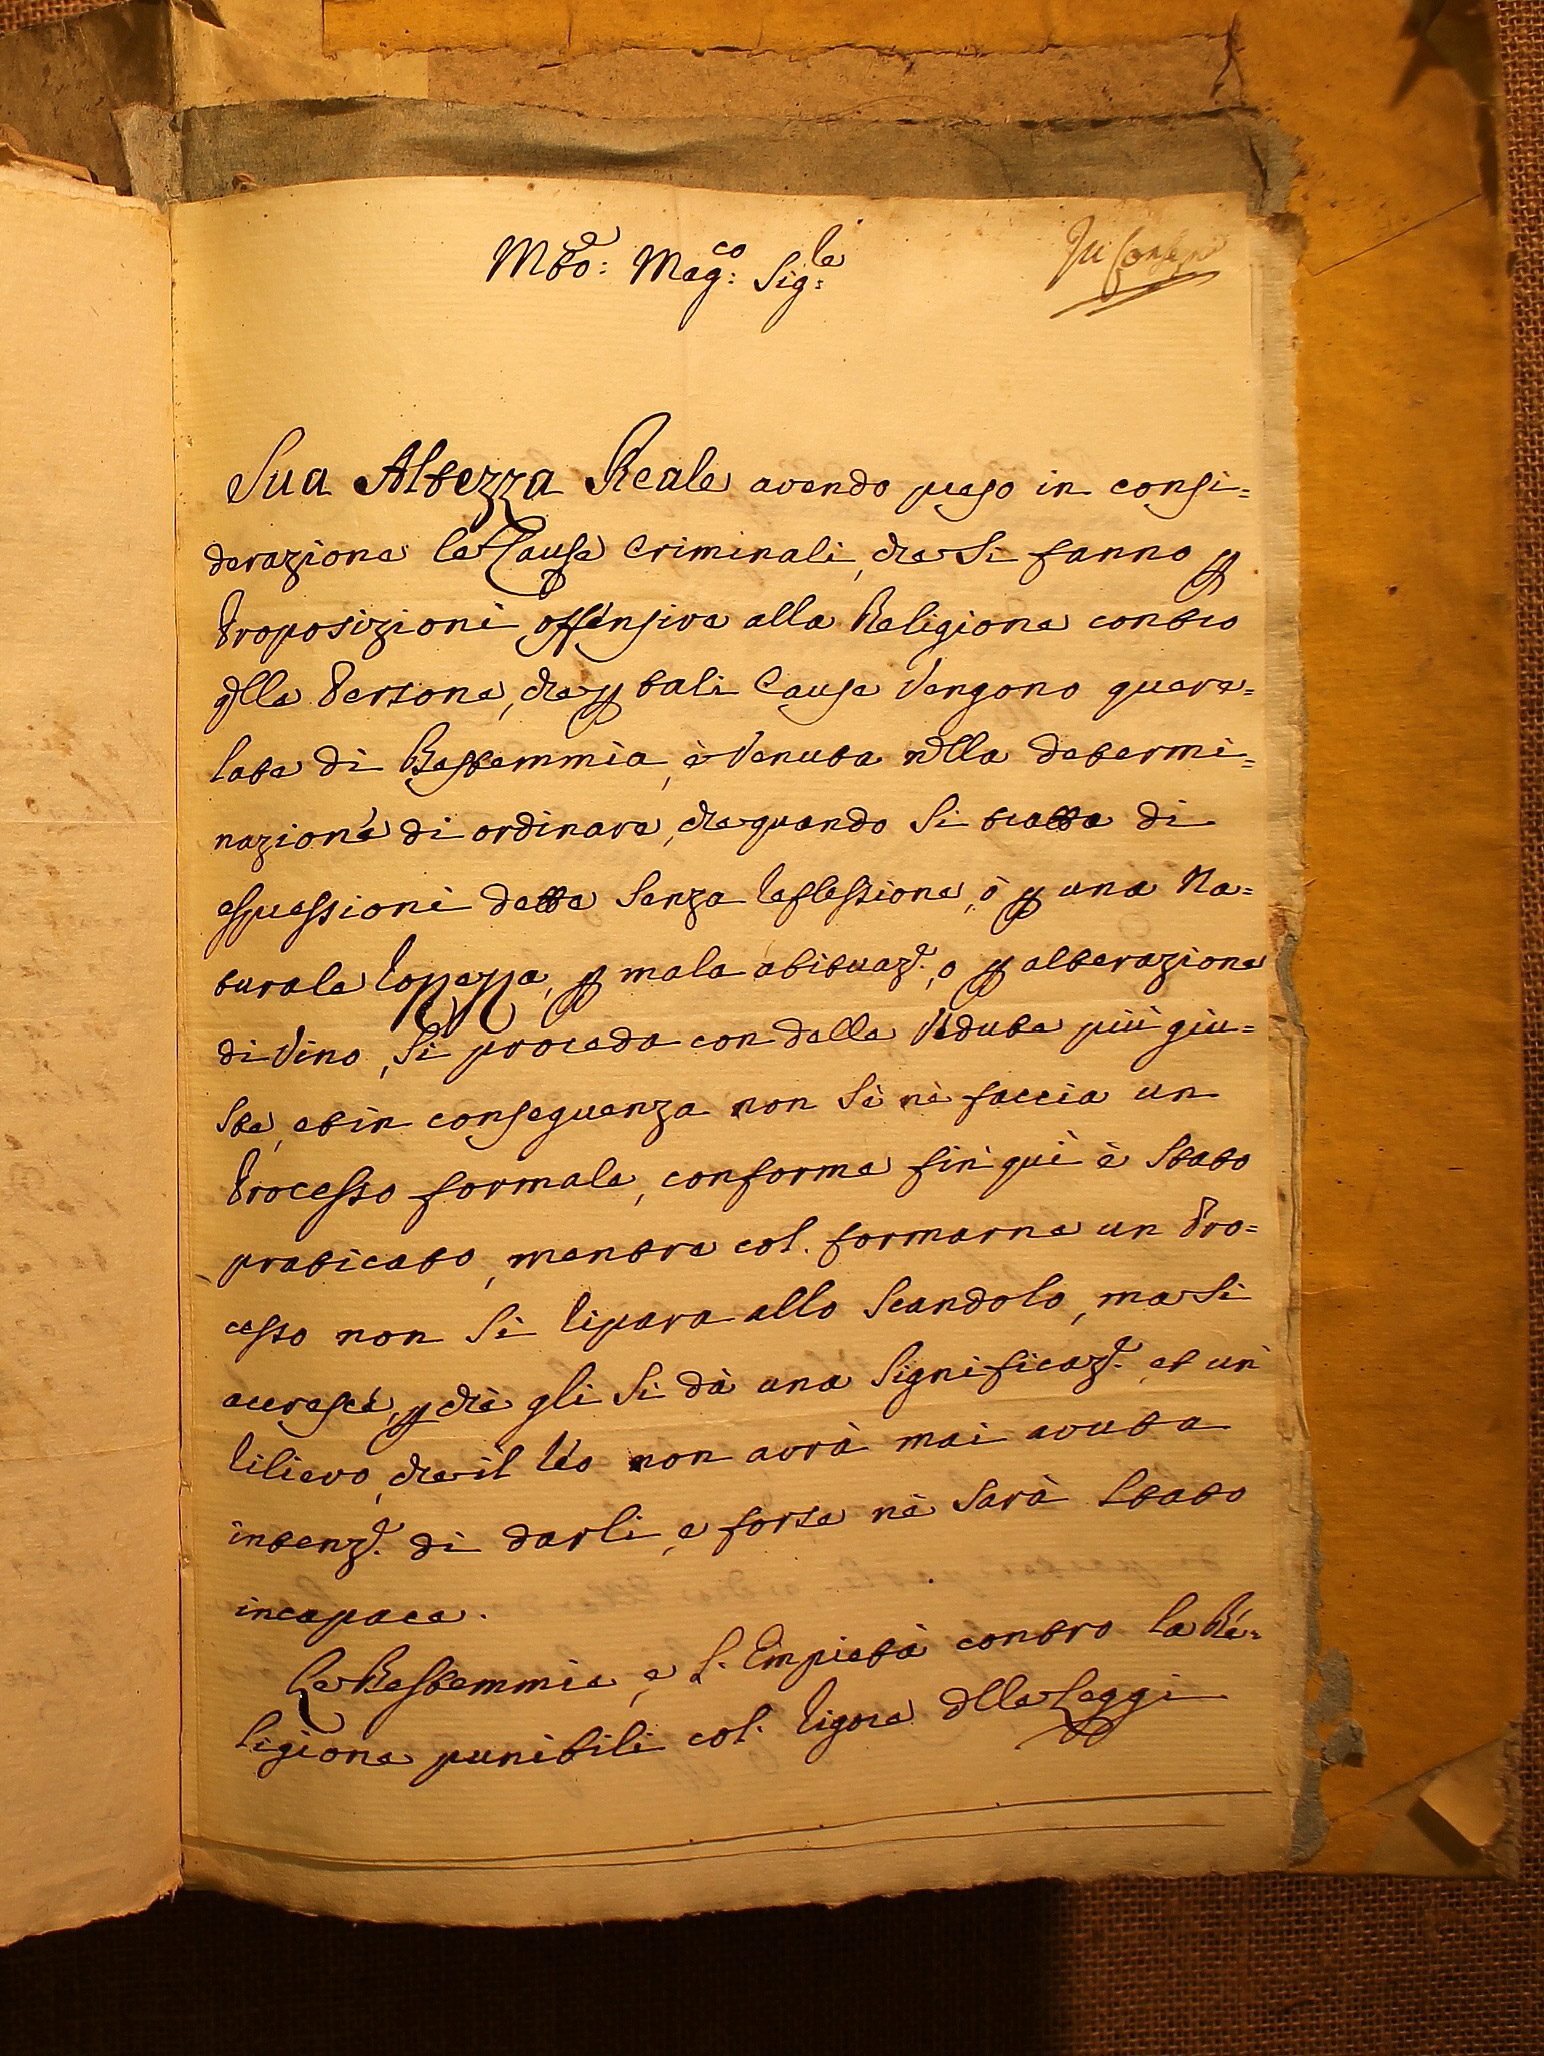 Mto: Mag:co Sig:re
Sua Altezza Reale avendo preso in consi=
derazione le Cause Criminali, che si fanno p
Proposizioni offensive alla Religione contro
qlle Persone, che p tali Cause Vengono quere=
late di Bestemmia, è Venuta nlla determi=
nazione di ordinare, che quando Si tratta di
espressioni dette Senza reflessione, ò p una Na=
turale rozzezza, p mala abituaz.e, o p alterazione
di Vino, Si proceda con delle Vedute più giu=
ste, et in conseguenza non Si nè faccia un
Processo formale, conforme fin quì è Stato
praticato, mentre col. formarne un Pro=
cesso non Si ripara allo Scandolo, ma Si
accresce, p chè gli Si dà una Significaz.e et un
rilievo, che il reo non avrà mai avuta
intenz.e di darli, e forse nè Sarà Stato
incapace.
Le Bestemmie, e l. Empietà contro la Re=
ligione punibili col. rigore dlle Leggi